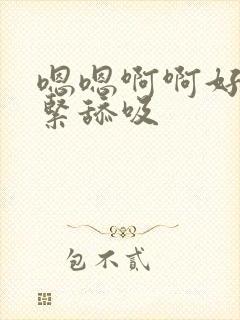 嗯嗯啊啊好
緊舔吸
包不貳